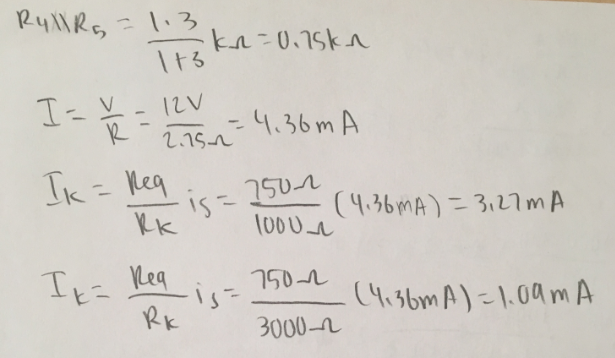 R4||R5 = 1.3/1+3 kΩ = 0.75kΩ
I = V/R = 12V/2.75Ω = 4.36mA
IK = Req/RK is = 750Ω/1000Ω (4.36mA) = 3.27mA
IK = Req/RK is = 750Ω/3000Ω (4.36mA) = 1.09mA